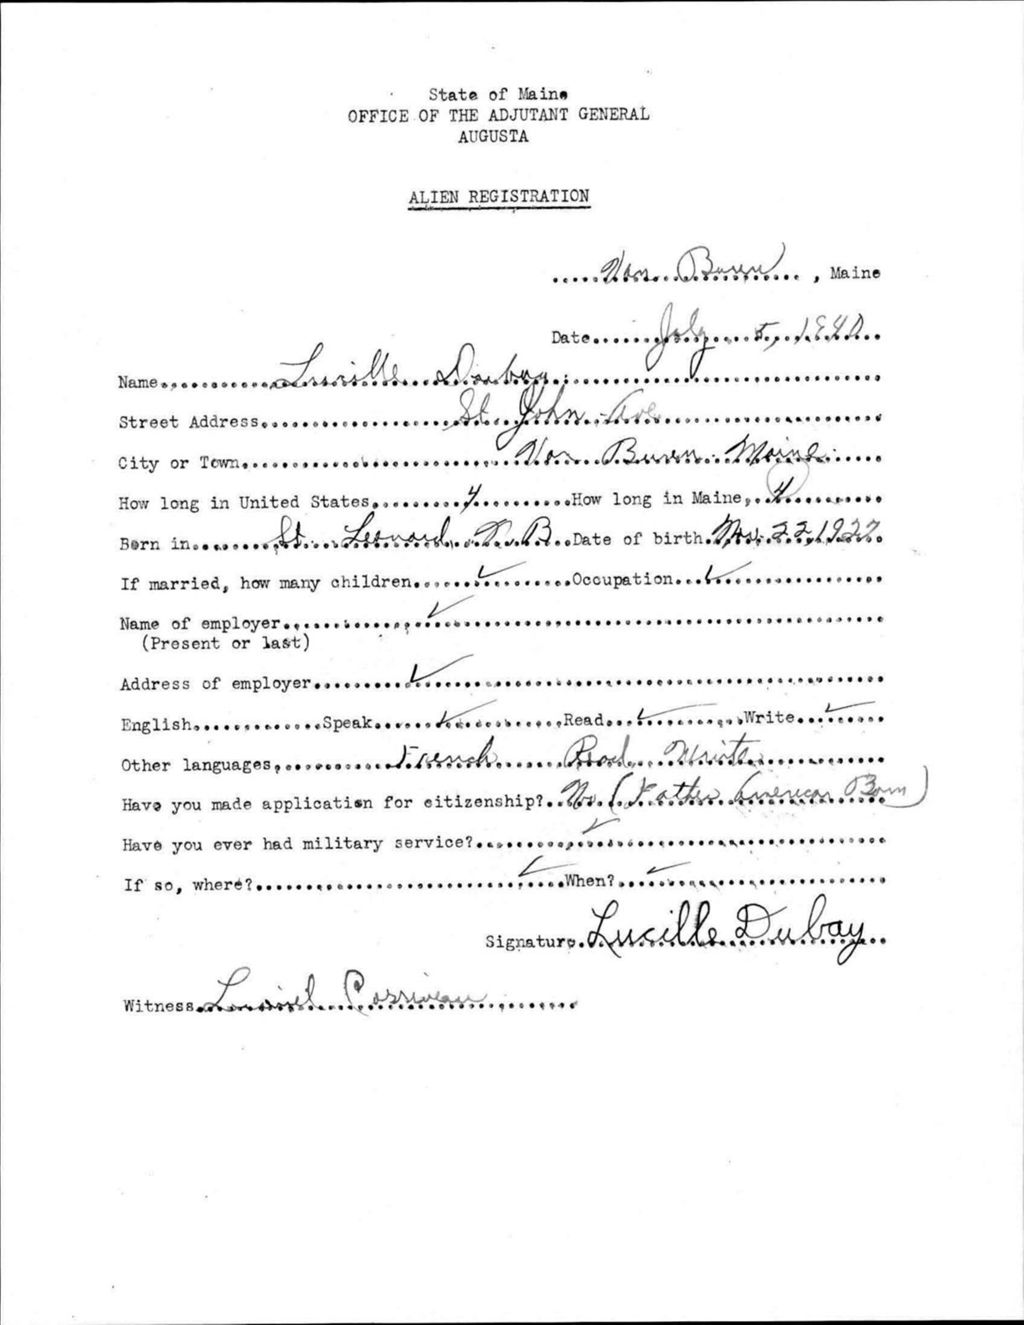 State of Maine
OFFICE OF THE ADJUTANT GENERAL
AUGUSTA
ALIEN REGISTRATION
Van Buren, Maine
Date July 5, 1940
Name Lucille Dubay
Street Address St. John Ave
City or Town Van Buren Maine
How long in United States 4 How long in Maine 4
Born in St. Leonard N.B. Date of birth Nov. 22, 1927
If married, how many children ✓ Occupation ✓
Name of employer ✓
(Present or last)
Address of employer ✓
English Speak ✓ Read ✓ Write ✓
Other languages French Read Write
Have you made application for citizenship? No (Father American Born)
Have you ever had military service? ✓
If so, where? ✓ When? ✓
Signature Lucille Dubay
Witness Corriveau